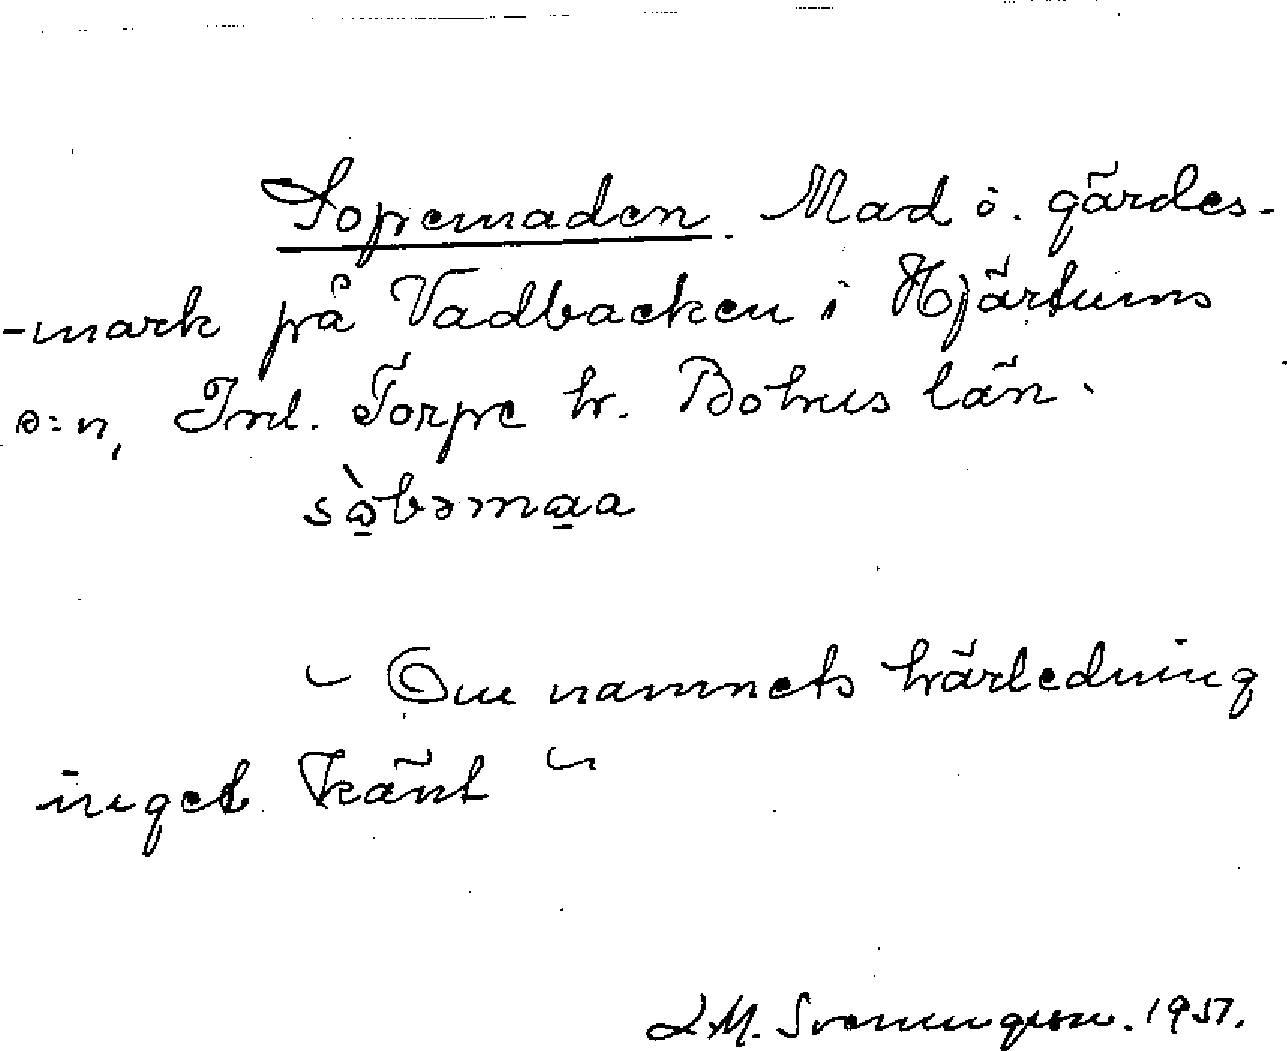 Sopemaden. Mad ö. gärdes-
-mark på Vadbacken i Hjärtums
s:n, Inl. Torpe hr. Bohus län.
sò̱bəma̱a
~ Om namnets härledning
inget känt ~
L.M. Svenungsson. 1957.